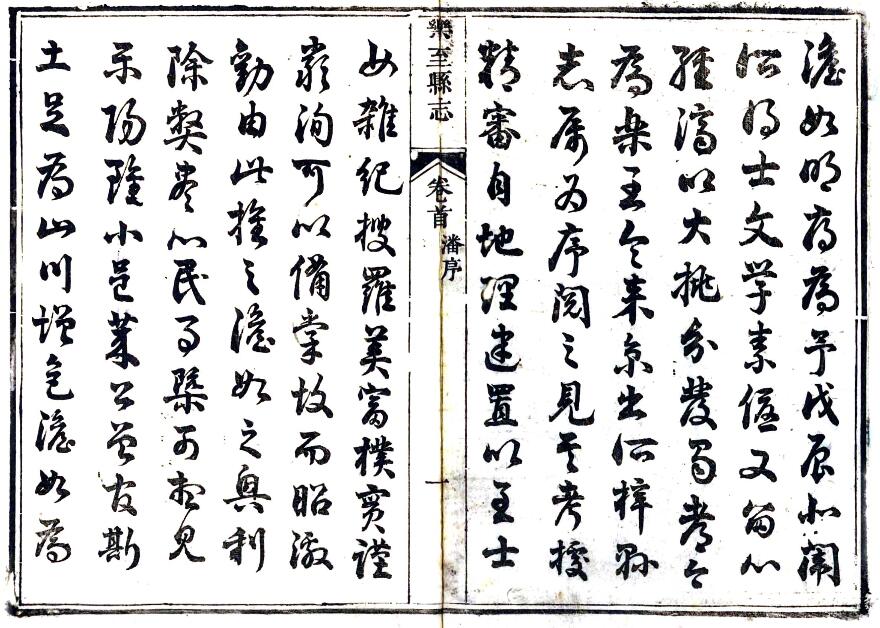 澹如明府為予戊辰北闈
所得士文學素優又留心
經濟以大挑分發蜀省今
為樂至令來京出所梓縣
志屬為序閱之見其考據
精審自地理建置以至士
樂至縣志
卷首
潘序
一
女雜紀搜羅美富樸實謹
嚴洵可以備掌故而昭激
勸由此推之澹如之興利
除弊盡心民事槩可想見
陽雖小邑公曾官斯
土足為山川增色澹如為